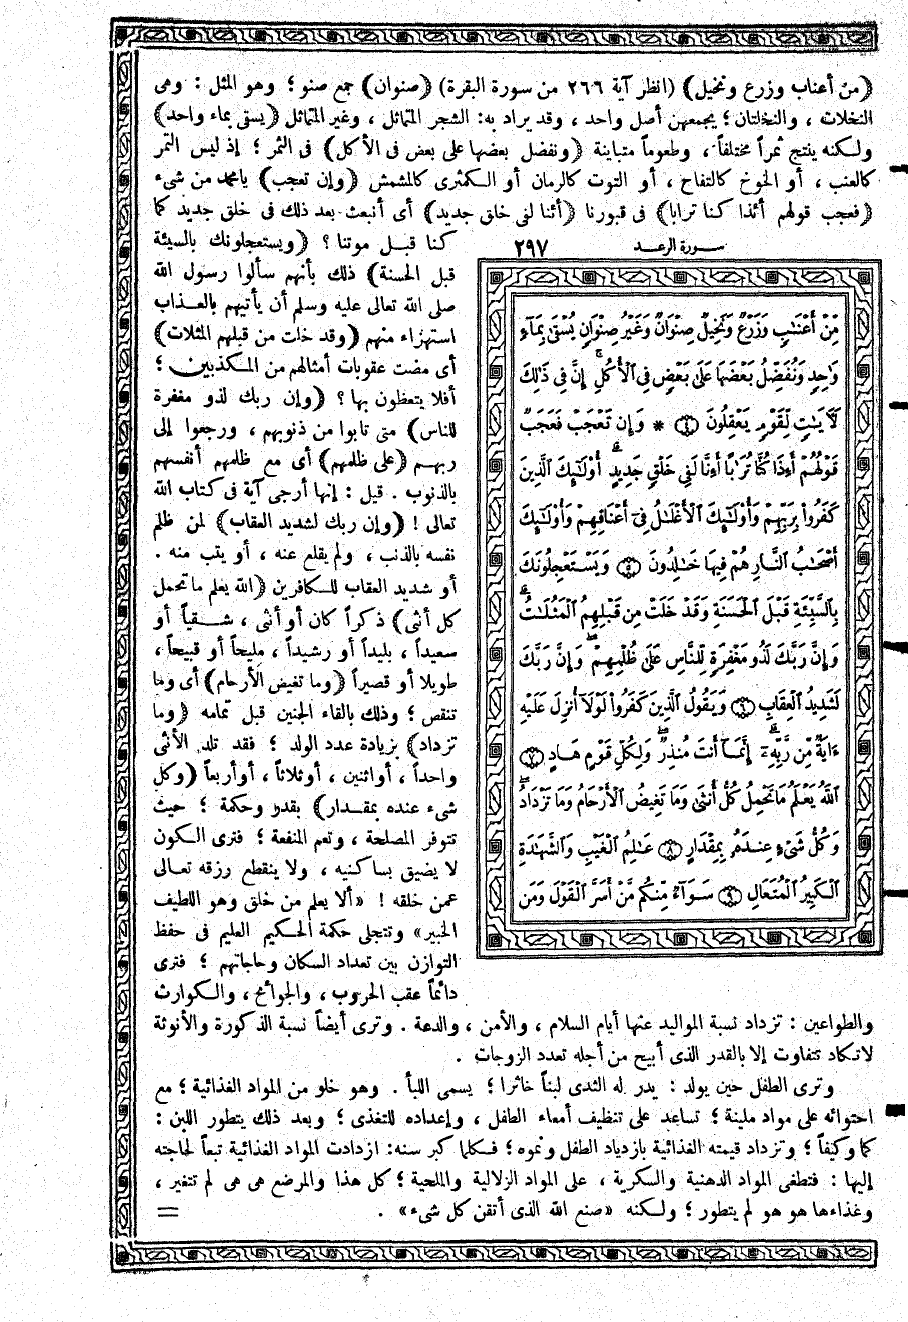 (من أعناب وزرع ونخيل) (انظر آية ٢٦٦ من سورة البقرة) (صنوان) جمع صنو ؛ وهو المثل : وهى
النخلات ، والنخلتان ؛ يجمعهن أصل واحد ، وقد يراد به : الشجر المتماثل ، وغير المتماثل (يسقى بماء واحد)
ولكنه ينتج ثمراً مختلفاً ، وطعوماً متباينة (ونفضل بعضها على بعض فى الأكل) فى الثمر ؛ إذ ليس التمر
كالعنب ، أو الخوخ كالتفاح ، أو التوت كالرمان أو الكمثرى كالمشمش (وإن تعجب) يا محمد من شىء
(فعجب قولهم أئذا كنا ترابا) فى قبورنا (أئنا لفى خلق جديد) أى أنبعث بعد ذلك فى خلق جديد كما
سورة الرعد ٢٩٧
مِّنْ أَعْنَٰبٍ وَزَرْعٌ وَنَخِيلٌ صِنْوَانٌ وَغَيْرُ صِنْوَانٍ يُسْقَىٰ بِمَآءٍ
وَٰحِدٍ وَنُفَضِّلُ بَعْضَهَا عَلَىٰ بَعْضٍ فِى ٱلْأُكُلِ ۚ إِنَّ فِى ذَٰلِكَ
لَءَايَٰتٍ لِّقَوْمٍ يَعْقِلُونَ (٤) * وَإِن تَعْجَبْ فَعَجَبٌ
قَوْلُهُمْ أَءِذَا كُنَّا تُرَٰبًا أَءِنَّا لَفِى خَلْقٍ جَدِيدٍ ۗ أُوْلَٰٓئِكَ ٱلَّذِينَ
كَفَرُوا۟ بِرَبِّهِمْ وَأُوْلَٰٓئِكَ ٱلْأَغْلَٰلُ فِىٓ أَعْنَاقِهِمْ وَأُوْلَٰٓئِكَ
أَصْحَٰبُ ٱلنَّارِ هُمْ فِيهَا خَٰلِدُونَ (٥) وَيَسْتَعْجِلُونَكَ
بِٱلسَّيِّئَةِ قَبْلَ ٱلْحَسَنَةِ وَقَدْ خَلَتْ مِن قَبْلِهِمُ ٱلْمَثُلَٰتُ ۗ
وَإِنَّ رَبَّكَ لَذُو مَغْفِرَةٍ لِّلنَّاسِ عَلَىٰ ظُلْمِهِمْ ۖ وَإِنَّ رَبَّكَ
لَشَدِيدُ ٱلْعِقَابِ (٦) وَيَقُولُ ٱلَّذِينَ كَفَرُوا۟ لَوْلَآ أُنزِلَ عَلَيْهِ
ءَايَةٌ مِّن رَّبِّهِۦٓ ۗ إِنَّمَآ أَنتَ مُنذِرٌ ۖ وَلِكُلِّ قَوْمٍ هَادٍ (٧)
ٱللَّهُ يَعْلَمُ مَا تَحْمِلُ كُلُّ أُنثَىٰ وَمَا تَغِيضُ ٱلْأَرْحَامُ وَمَا تَزْدَادُ ۖ
وَكُلُّ شَىْءٍ عِندَهُۥ بِمِقْدَارٍ (٨) عَٰلِمُ ٱلْغَيْبِ وَٱلشَّهَٰدَةِ
ٱلْكَبِيرُ ٱلْمُتَعَالِ (٩) سَوَآءٌ مِّنكُم مَّنْ أَسَرَّ ٱلْقَوْلَ وَمَن
كنا قبل موتنا ؟ (ويستعجلونك بالسيئة
قبل الحسنة) ذلك بأنهم سألوا رسول الله
صلى الله تعالى عليه وسلم أن يأتيهم بالعذاب
استهزاء منهم (وقد خلت من قبلهم المثلات)
أى مضت عقوبات أمثالهم من المكذبين ؛
أفلا يتعظون بها ؟ (وإن ربك لذو مغفرة
للناس) متى تابوا من ذنوبهم ، ورجعوا إلى
ربهم (على ظلمهم) أى مع ظلمهم أنفسهم
بالذنوب . قيل : إنها أرجى آية فى كتاب الله
تعالى ! (وإن ربك لشديد العقاب) لمن ظلم
نفسه بالذنب ، ولم يقلع عنه ، أو يتب منه .
أو شديد العقاب للكافرين (الله يعلم ما تحمل
كل أنثى) ذكراً كان أو أنثى ، شقياً أو
سعيداً ، بليداً أو رشيداً ، مليحاً أو قبيحاً ،
طويلا أو قصيراً (وما تغيض الأرحام) أى وما
تنقص ؛ وذلك بالقاء الجنين قبل تمامه (وما
تزداد) بزيادة عدد الولد ؛ فقد تلد الأنثى
واحداً ، أو اثنين ، أو ثلاثاً ، أو أربعاً (وكل
شىء عنده بمقدار) بقدر وحكمة ؛ حيث
تتوفر المصلحة ، وتعم المنفعة ؛ فترى الكون
لا يضيق بساكنيه ، ولا ينقطع رزقه تعالى
عمن خلقه ! «ألا يعلم من خلق وهو اللطيف
الخبير» وتتجلى حكمة الحكيم العليم فى حفظ
التوازن بين تعداد السكان وحاجاتهم ؛ فترى
دائماً عقب الحروب ، والجوائح ، والكوارث
والطواعين : تزداد نسبة المواليد عنها أيام السلام ، والأمن ، والدعة . وترى أيضاً نسبة الذكورة والأنوثة
لا تكاد تتفاوت إلا بالقدر الذى أبيح من أجله تعدد الزوجات .
وترى الطفل حين يولد : يدر له الثدى لبناً خاثرا ؛ يسمى اللبأ . وهو خلو من المواد الغذائية ؛ مع
احتوائه على مواد ملينة ؛ تساعد على تنظيف أمعاء الطفل ، وإعداده للتغذى ؛ وبعد ذلك يتطور اللبن :
كما وكيفاً ؛ وتزداد قيمته الغذائية بازدياد الطفل ونموه ؛ فكلما كبر سنه : ازدادت المواد الغذائية تبعاً لحاجته
إليها : فتطغى المواد الدهنية والسكرية ، على المواد الزلالية والملحية ؛ كل هذا والمرضع هى هى لم تتغير ،
وغذاءها هو هو لم يتطور ؛ ولكنه «صنع الله الذى أتقن كل شىء» . =